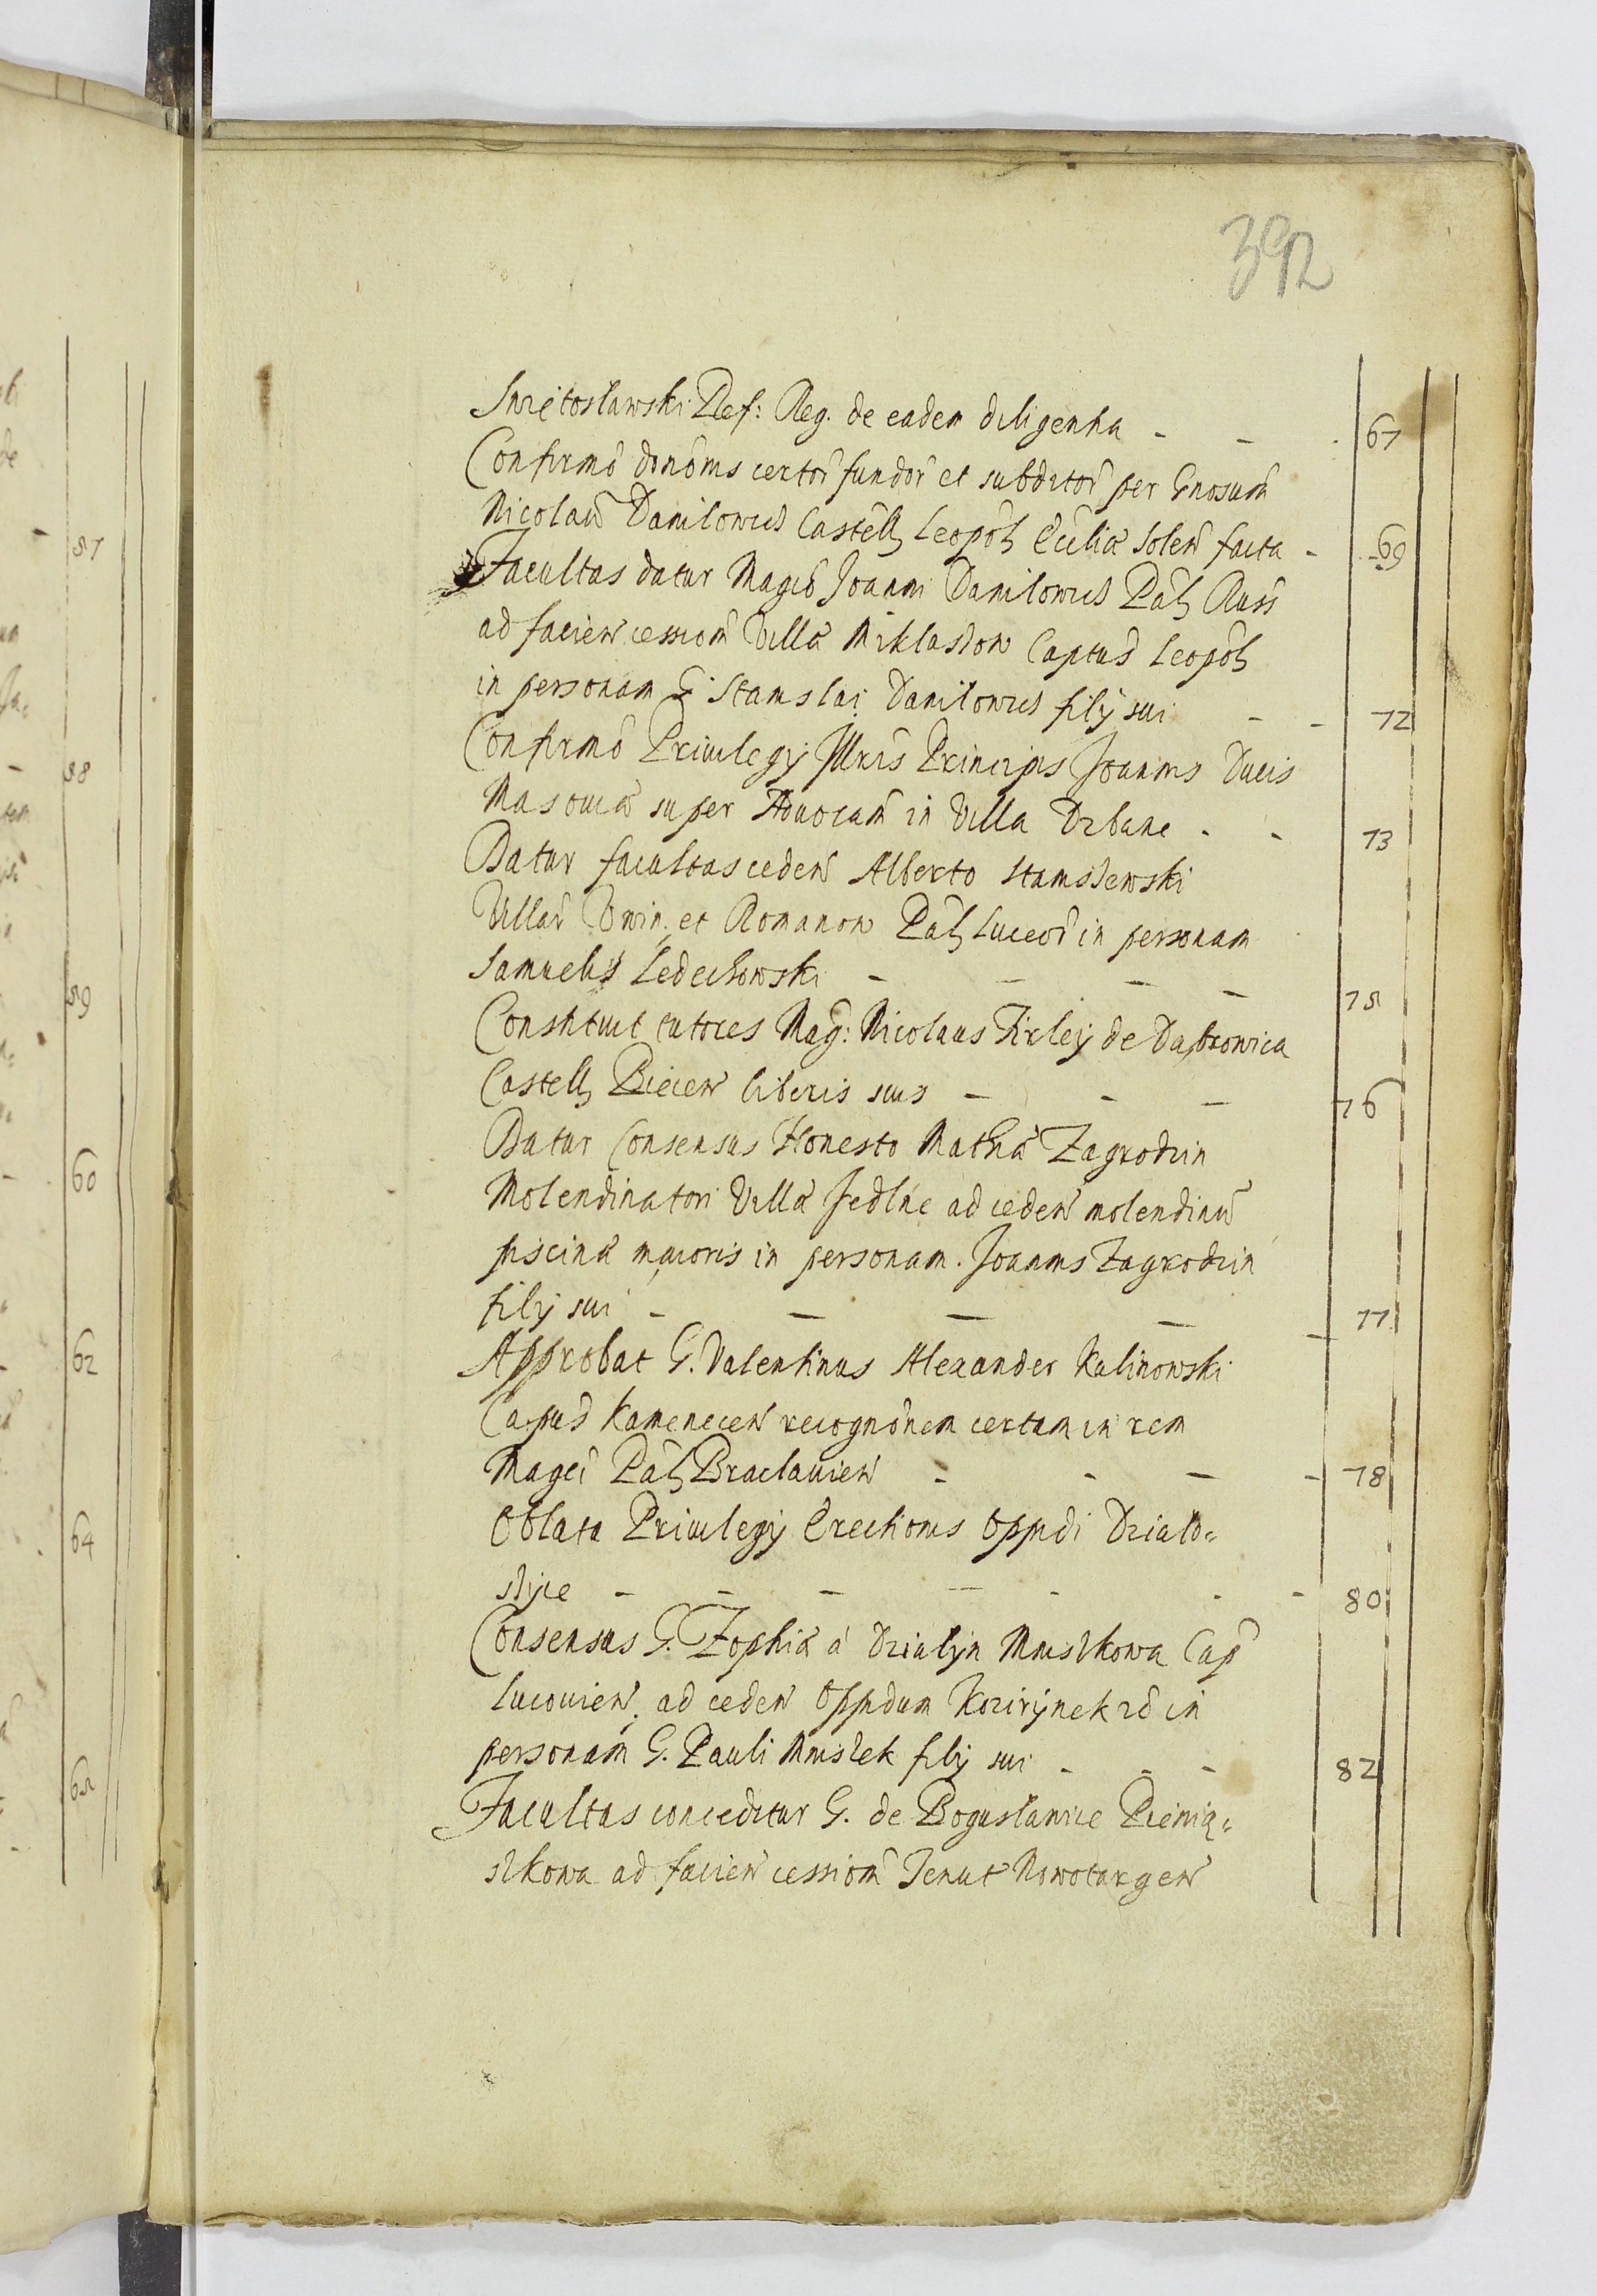 57
58
59
60
62
64
65
392
Swiętosławski Ref: Reg. de eadem diligentia - - - 67
Confirmõ donõnis certor̃ fundor̃ et subditor̃ per Gnosum̃
Nicolaũ Danilowicz Castell Leopol Ecclia Solen̄ facta - 69
Facultas datur Magco Joanni Danilowicz Pal Russ
ad facien̄ cession̄ Villa Miklaszow Captus Leopol
in personam G. Stanislai Danilowicz filij sui - - 72
Confirmõ Priuilegij Illris Principis Joannis Ducis
Masouiæ super Aduocam̃ in Villa Dzbane - - 73
Datur facultas ceden̄ Alberto Staniszewski
Villar̃ Dwin, et Romanow Pal Luceor̃ in personam
Samuelis Ledechowski - - - - 75
Constituit tutores Mag: Nicolaus Firley de Dąbrowica
Castell Biecen̄ liberis suis - - - 76
Datur Consensus Honesto Mathiæ Zagrodzin
Molendinatori Villæ Jedlne ad ceden̄ molendinũ
piscinæ maioris in personam. Joannis Zagrodzin
filij sui - - - - - 77
Approbat G. Valentinus Alexander Kalinowski
Capus Kamenecen̄ recognõnem certam in rem
Magci Pal Braclauien̄ - - - - 78
Oblata Priuilegij Erectionis Oppidi Działo-
szyce - - - - - - - 80
Consensus G. Zophiæ a Dzialyn Mniszkowa Cap
Lucouien̄. ad ceden̄ Oppidum Kozirynek in
personam G. Pauli Mniszek filij sui - - - 82
Facultas conceditur G. de Bogusławice Pienią-
szkowa ad facien̄ cession̄ Tenut Nowotargen̄